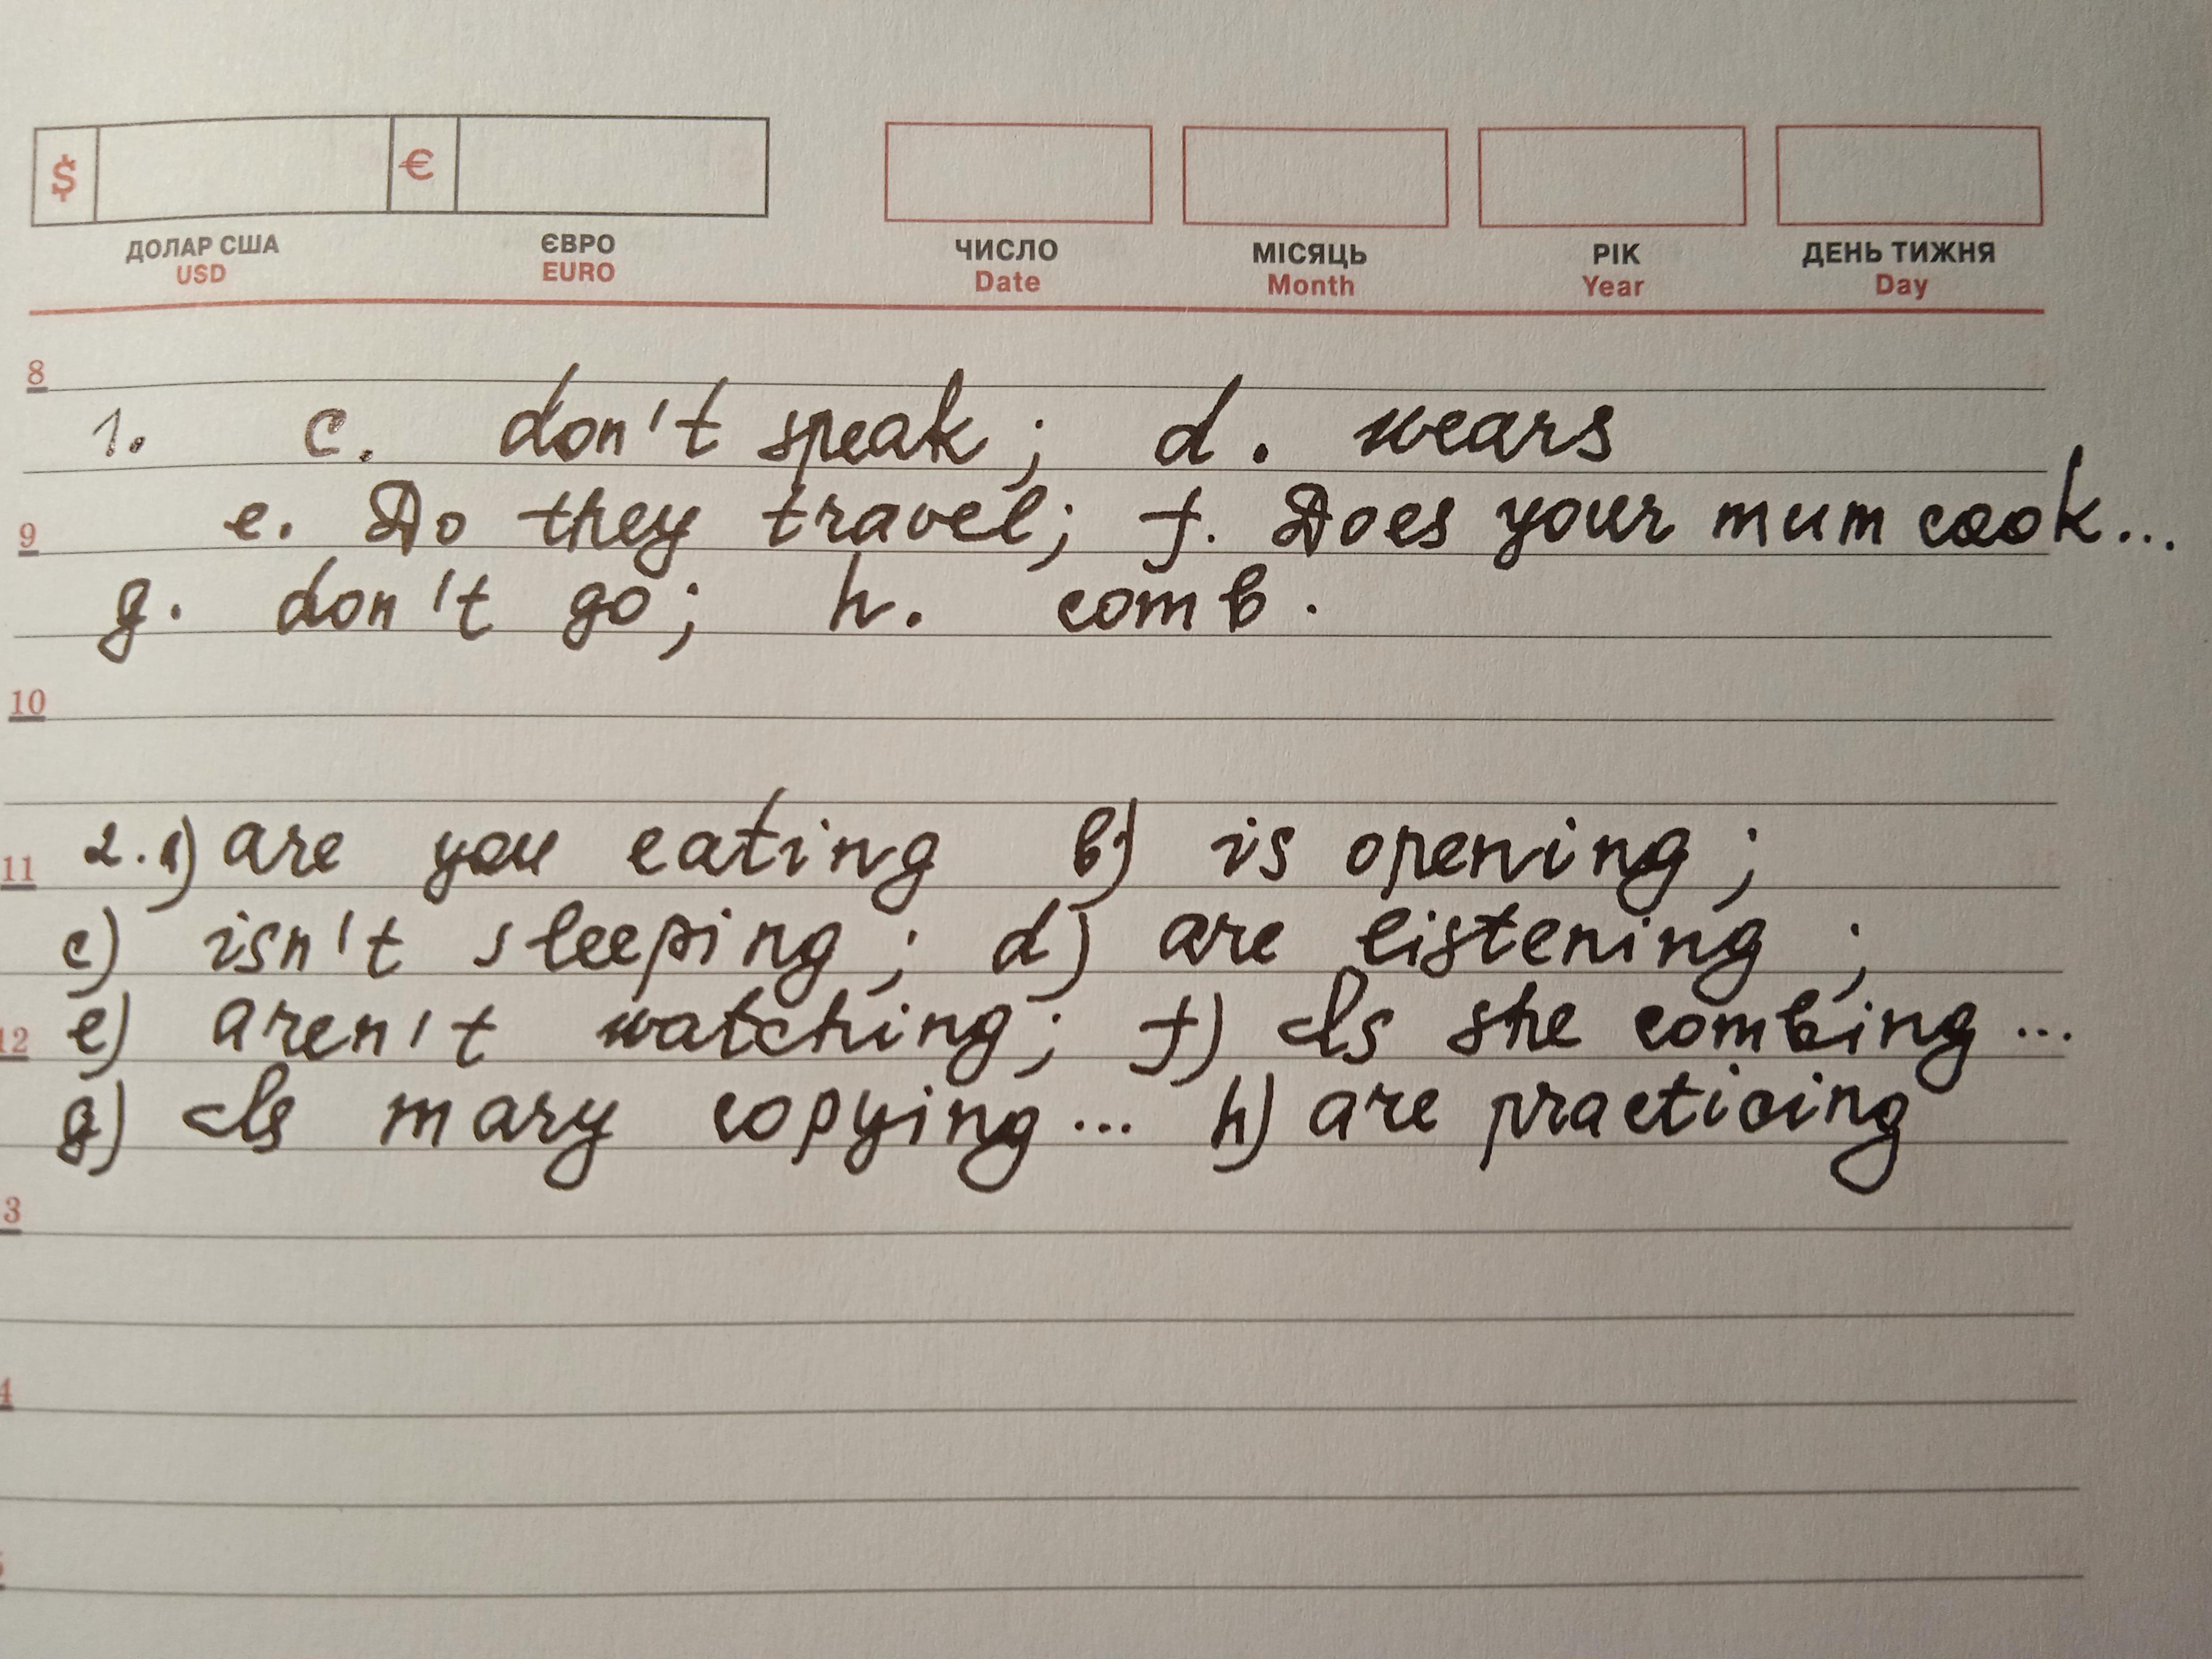 $ €
ДОЛАР США ЄВРО ЧИСЛО МІСЯЦЬ РІК ДЕНЬ ТИЖНЯ
USD EURO Date Month Year Day
8
1. c. don't speak; d. wears
9 e. Do they travel; f. Does your mum cook...
g. don't go; h. comb.
10
11 2. a) are you eating b) is opening;
c) isn't sleeping; d) are listening;
12 e) aren't watching; f) Is she combing...
g) Is mary copying... h) are practicing
3
4